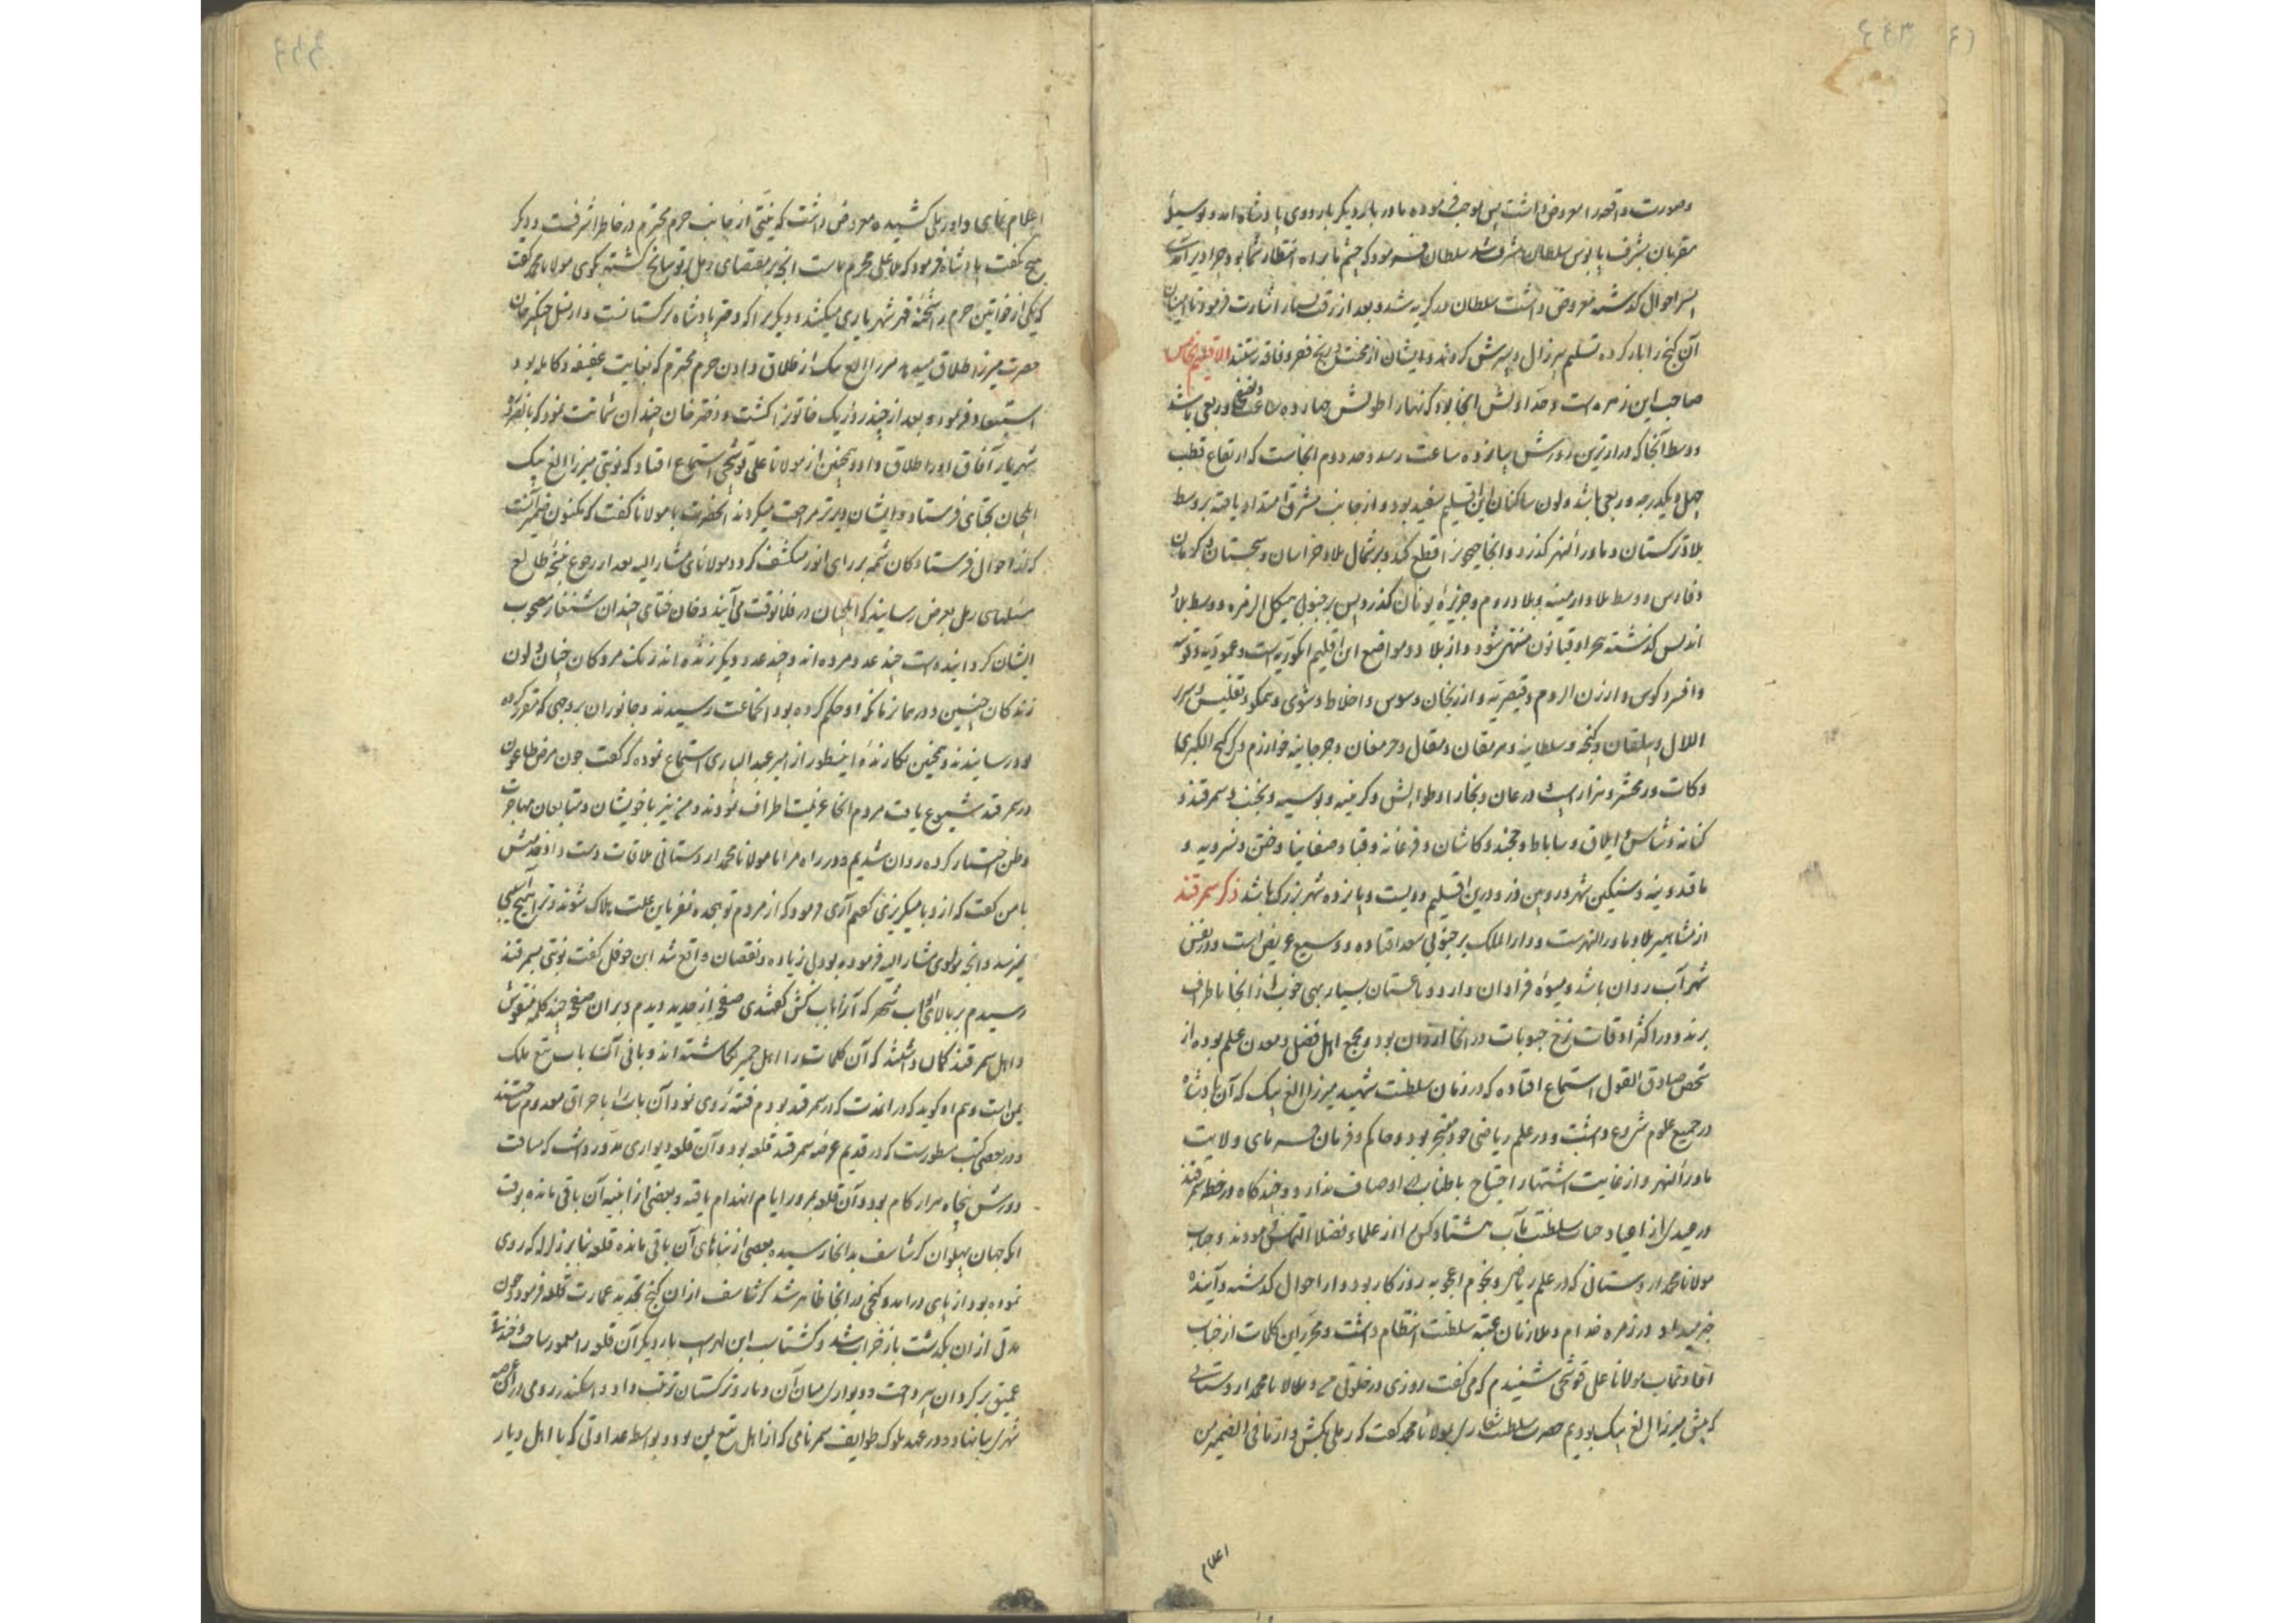 وصورت واقعه را معروض داشت پس بموجب فرموده مادر بار دیگر باردوی پادشاه آمد و بوسیلهٔ
مقربان بشرف پابوس سلطان مشرف شد سلطان فرمود که چشم ما براه انتظار شما بود چرا دیر آمدی
پسر احوال گذشته معروض داشت سلطان در گریه شد و بعد از رقت بسیار اشارت فرمود تا امینان
آن گنج را بار کرده تسلیم پیرزال و پسرش کردند و ایشان از محنت و رنج فقر و فاقه رستند الاقلیم الخامس
صاحب این زهره است و حد اولش آنجا بود که نهار اطولش چهارده ساعت و نصف و ربعی باشد
و وسط آنجا که درازترین روزش پانزده ساعت رسد و حد دوم آنجاست که ارتفاع قطب
چهل و یکدرجه و ربعی باشد و لون ساکنان این اقلیم سفید بود و از جانب مشرق امتداد یافته بر وسط
بلاد ترکستان و ماوراءالنهر گذرد و آنجا جیحون را قطع کند و بر شمال بلاد خراسان و سجستان و کرمان
و فارس و وسط بلاد ارمینیه و بلاد روم و جزیرهٔ یونان گذرد پس بر جنوب هیکل الزهره و وسط بلاد
اندلس گذشته ببحر اوقیانوس منتهی شود و از بلاد و مواضع این اقلیم انکوریه است و عموریه و قونیه
و اقسرا و کوس و ارزن الروم و قیصریه و ارزنجان و سوس و اخلاط و شوی و شمکور و تفلیس و سریر
اللال و بیلقان و گنجه و سلطانیه و دهرمغان و جرجانیه خوارزم گرکنج الکبری
و کاث و زمخشر و هزار اسب و درعان و بخارا و طواویس و کرمینیه و دبوسیه و نخشب و سمرقند و
کتانه و شاش و ایلاق و ساباط و خجند و کاشان و فرغانه و قبا و صغانیان و ختن و
ماقدونیه و درین اقلیم دویست و پانزده شهر بزرگ باشد ذکر سمرقند
از مشاهیر بلاد ماوراءالنهرست و دارالملک بر جنوبی سغد افتاده و وسیع و عریض است و در نفس
شهر آب روان باشد و میوهٔ فراوان دارد و باغستان بسیار بهی خوب از آنجا باطراف
برند و در اکثر اوقات نرخ حبوبات در آنجا ارزان بود و مجمع اهل فضل و معدن علم بوده از
شخص صادق القول استماع افتاده که در زمان سلطنت شهید میرزا الغ بیک که آن پادشاه
در جمیع علوم شروع داشت و در علم ریاضی خود متبحر بود و حاکم و فرمان فرمای ولایت
ماوراءالنهر و از غایت اشتهار احتیاج باطناب اوصاف ندارد و چند گاه در خطه سمرقند
در عیدی از اعیاد جناب سلطنت مآب هشتاد کس را از علماء و فضلا التماس فرمودند و جناب
مولانا محمد اردستانی که در علم ریاضی و نجوم اعجوبه روزگار بود و از احوال گذشته و آینده
خبر میداد در زمره خدام و ملازمان عتبه سلطنت انتظام داشت و محرر این کلمات از جناب
افادت مآب مولانا علی قوشجی شنیدم که می گفت روزی در خلوتی من و مولانا محمد اردستانی
که پیش میرزا الغ بیک بودیم حضرت سلطنت شعاری بمولانا محمد گفت که رملی بکش و از ما فی الضمیر من
اعلام
اعلام نمای و او رملی کشیده معروض داشت که نیتی از جانب حرم محترم در خاطر اشرفست و دیگر
هیچ نگفت پادشاه فرمود که ملا علی محرم ماست آنچه بر مقتضای رمل بر تو سانح گشته بگوی مولانا محمد گفت
که یکی از خواتین حرم را شحنهٔ قهر شهریاری میکشد و دیگر را که دختر پادشاه ترکستانست و از نسل چنگیز خان
حضرت میرزا طلاق میدهد میرزا الغ بیک از طلاق دادن حرم محترم که بغایت عفیفه و کامله بود
استبعاد فرموده بعد از چند روز یک خاتون را کشت و دختر خان چندان شماتت نمود که بالضروره
شهریار آفاق او را طلاق داد و همچنین از مولانا علی قوشجی استماع افتاد که نوبتی میرزا الغ بیک
ایلچیان بختای فرستاد و ایشان دیرتر مراجعت میکردند آنحضرت با مولانا گفت که مکنون ضمیر آنست
که از احوال فرستادگان شمه بر رای انور منکشف گردد مولانای مشار الیه بعد از رجوع بنتیجهٔ طالع
مسئلهای رمل بعرض رسانید که ایلچیان در فلان وقت می آیند و خان ختای چندان شنقار مصحوب
ایشان گردانیده است چند عدد مرده اند و چند عدد دیگر زنده اند رنگ مردگان چنان و لون
زندگان چنین و در همان زمان که او حکم کرده بود آنجماعت رسیدند و جانوران بر وجهی که مقرر کرده
بود رسانیدند و همچنین نگارندهٔ این سطور از امیر عبد الباری استماع نموده که گفت چون مرض طاعون
در سمرقند شیوع یافت مردم آنجا عزیمت اطراف نمودند و من نیز با خویشان و متابعان مهاجرت
وطن اختیار کرده روان شدیم و در راه مرا با مولانا محمد اردستانی ملاقات دست داد خدمتش
با من گفت که از وبا میگریزی گفتم آری فرمود که از مردم تو هجده نفر باین علت هلاک شوند و ترا هیچ آسیبی
نمیرسد و آنچه مولوی مشار الیه فرموده بود بی زیاده و نقصان واقع شد ابن حوقل گفت نوبتی بسمرقند
رسیدم بر بالای باب شهر که آنرا باب کش گفتندی صفحه از حدید دیدم و بر آن صفحه چند کلمه منقوش
و اهل سمرقند گمان داشتند که آن کلمات را اهل حمیر نگاشته اند و بانی آن باب تبع ملک
یمن است و هم او گوید که در آن مدت که در سمرقند بودم فتنه روی نمود آن باب را باحراق معدوم ساختند
و در بعضی کتب مسطورست که در قدیم عرصهٔ سمرقند قلعه بود و آن قلعه دیواری مدور داشت که مسافت
دورش پنجاه هزار گام بود و آن قلعه بمرور ایام انهدام یافته و بعضی از ابنیه آن باقی مانده بوقت
آنکه جهان پهلوان گرشاسف بدانجا رسیده بعضی از بناهای آن باقی مانده قلعه بنا بر زلزله که روی
نموده بود از پای درآمد و گنجی در آنجا ظاهر شد گرشاسف از آن گنج تجدید عمارت قلعه فرمود چون
مدتی از آن بگذشت باز خراب شد و گشتاسب ابن لهراسب بار دیگر آن قلعه را معمور ساخت و خندقی
عمیق بر گرد آن پرداخت و دیواری میان آن دیار و ترکستان ترتیب داد و اسکندر رومی در آن عرصه
شهری بنا نهاد و در عهد ملوک طوایف سمر نامی که از اهل تبع یمن بود و بواسطه عداوتی که با اهل دیار